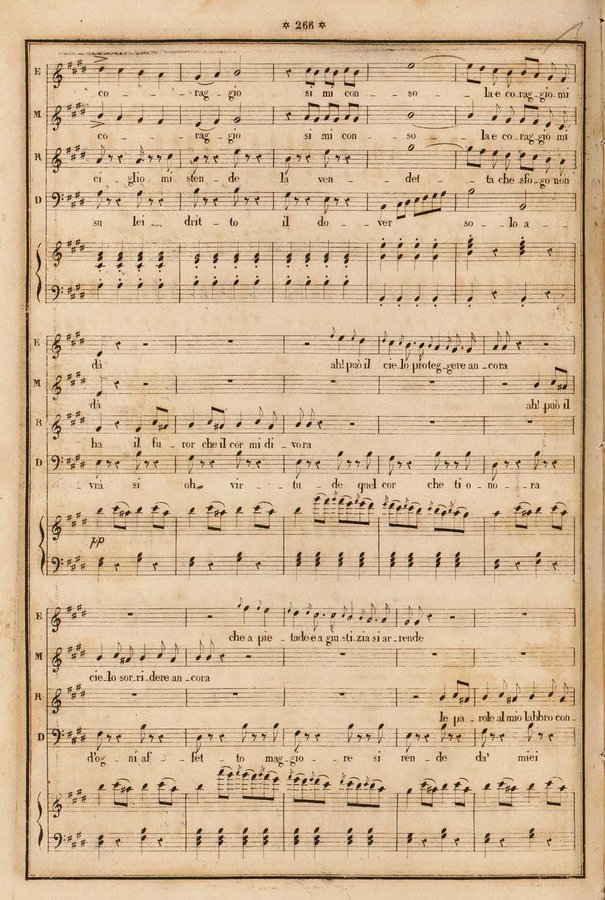 ✡ 266 ✡
E
co - rag - gio si mi con - so - la e co - rag - gio mi
M
co - rag - gio si mi con - so - la e co - rag - gio mi
R
ci - glio mi sten - de la ven - det - ta che sfo - go non
D
su lei drit - to il do - ver so - lo a -
E
dà ah! può il cie - lo proteg - gere an - cora
M
dà ah! può il
R
ha il fu - ror che il cor mi di - vora
D
vrà si oh vir - tù - de quel cor che ti o - no - ra
pp
E
che a pie - tade e a giu - sti - zia si ar - rende
M
cie - lo sor - ri - dere an - cora
R
le pa - role al mio labbro con -
D
d'og - ni af - fet - to mag - gio - re si ren - de da' miei